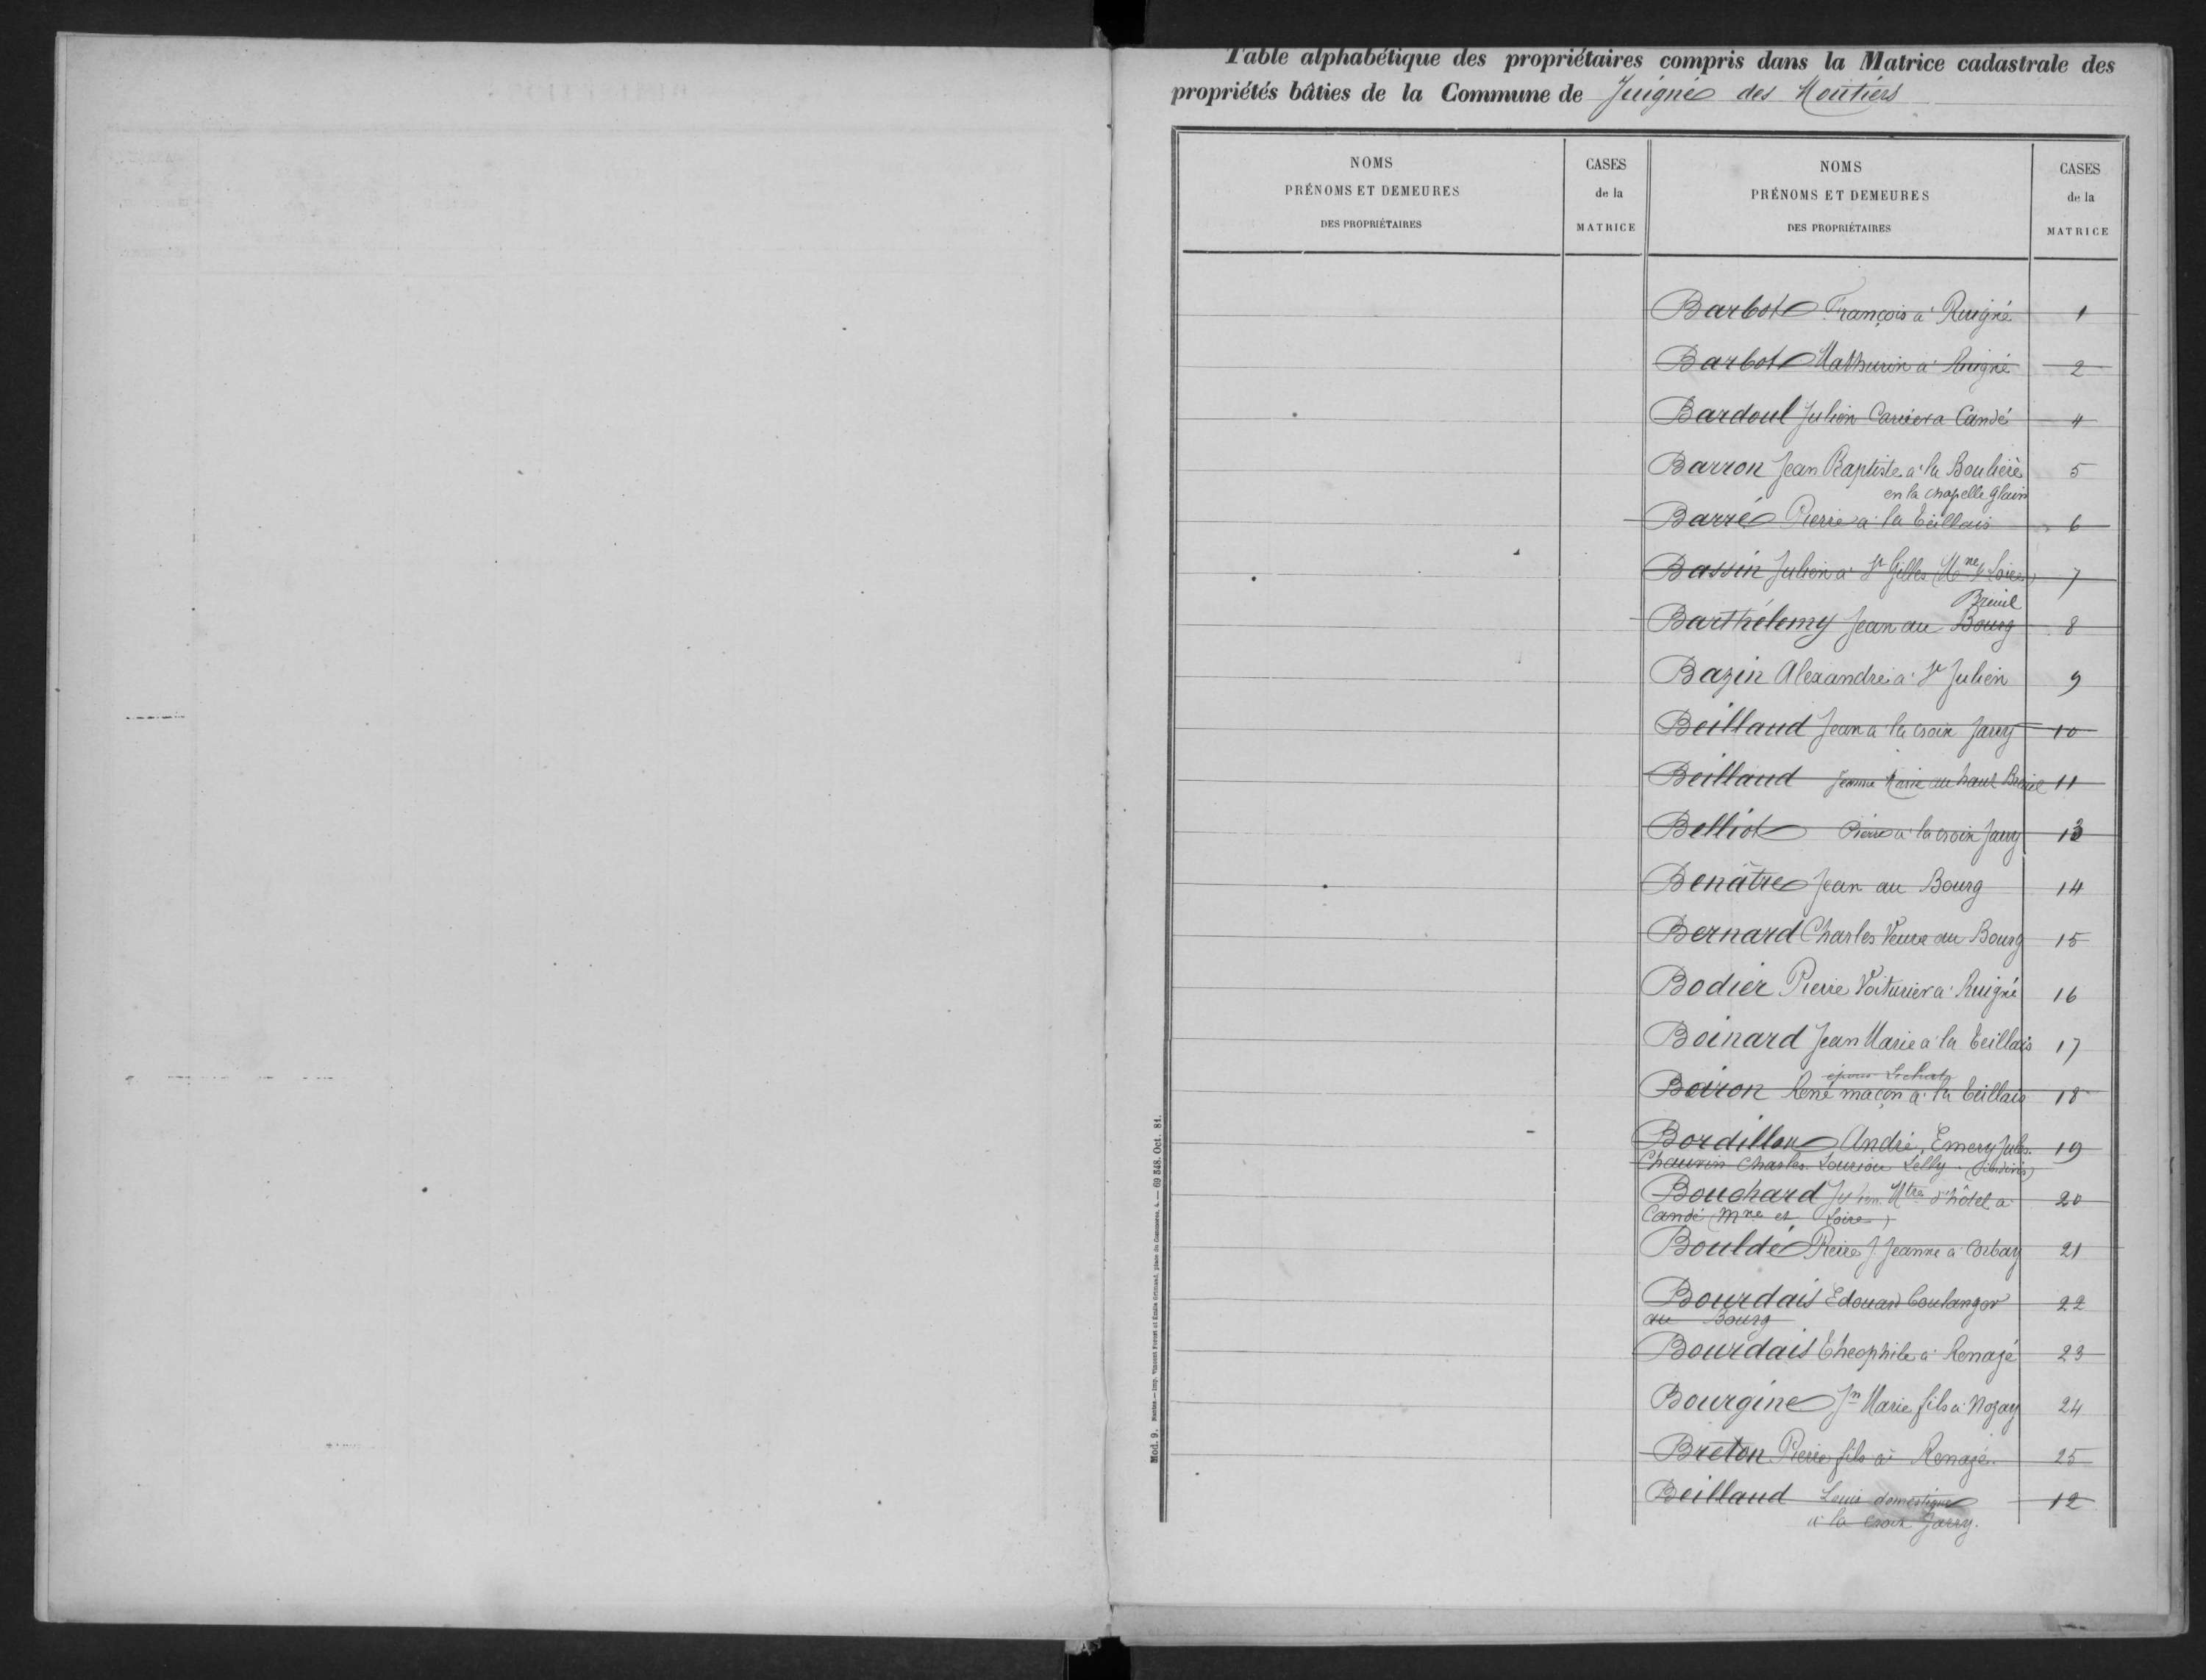 Table alphabétique des propriétaires compris dans la Matrice cadastrale des
propriétés bâties de la Commune de Juigné des Moutiers
NOMS
PRÉNOMS ET DEMEURES
DES PROPRIÉTAIRES
CASES
de la
MATRICE
NOMS
PRÉNOMS ET DEMEURES
DES PROPRIÉTAIRES
CASES
de la
MATRICE
Barbot François à Ruigné 1
Barbot Mathurin à Ruigné 2
Bardoul Julien Carrier à Candé 4
Barron Jean Baptiste à la Boulière 5
en la chapelle glain
Barré Pierre à la Teillais 6
Bassin Julien à St Gilles (Mne & Loire) 7
Breuil
Barthélemy Jean au Bourg 8
Bazin Alexandre à St Julien 9
Beilland Jean à la croix Jarry 10
Beilland Jeanne Marie au haut Breuil 11
Belliot Pierre à la croix Jarry 13
Benâtre Jean au Bourg 14
Bernard Charles Veuve au Bourg 15
Bodier Pierre Voiturier à Ruigné 16
Boinard Jean Marie à la Teillais 17
épouse Lechat
Boiron René maçon à la Teillais 18
Bordillon André, Emery Jules 19
Chauvin Charles Louriou Lelly
Bouchard Julien Mtre d'hôtel à 20
Candé (Mne et Loire)
Bouldé Pierre J. Jeanne à Corbay 21
Bourdais Edouard boulanger 22
au Bourg
Bourdais Théophile à Renazé 23
Bourgine Jn Marie fils à Nozay 24
Breton Pierre fils à Renazé. 25
Beilland Louis domestique 12
à la croix Jarry.
Mod. 9. Nantes.—Imp. Vincent Forest et Émile Grimaud, place du Commerce, 4.— 69 348. Oct. 81.